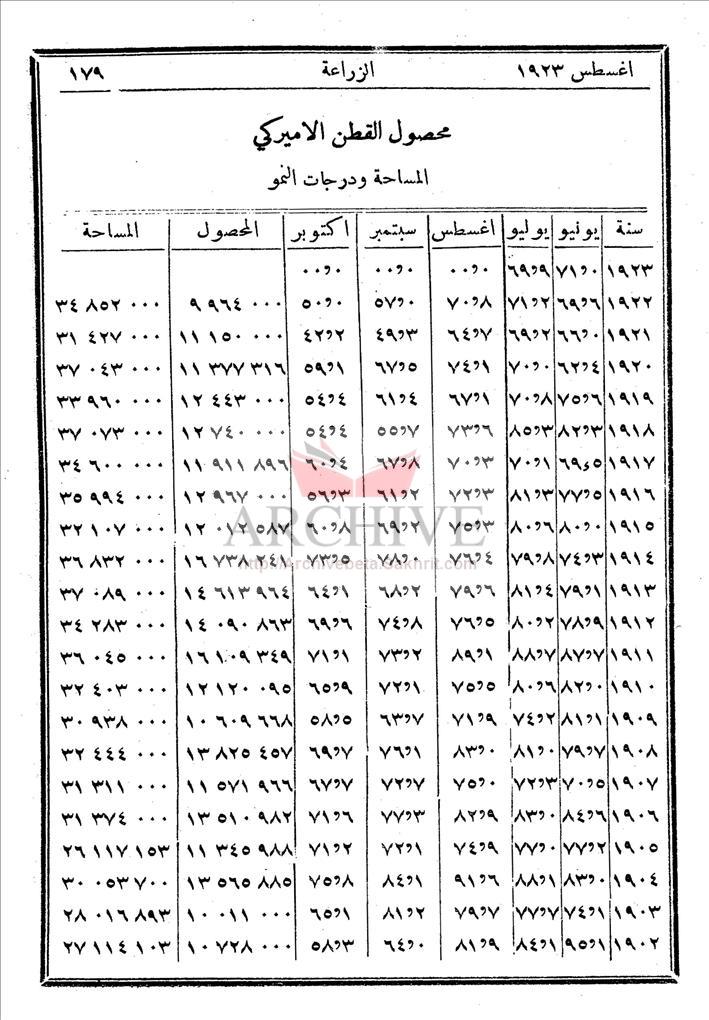 اغسطس ١٩٢٣ الزراعة ١٧٩
محصول القطن الاميركي
المساحة ودرجات النمو
سنة يونيو يوليو اغسطس سبتمبر اكتوبر المحصول المساحة
١٩٢٣ ٧١٫٠ ٦٩٫٩ ٠٠٫٠ ٠٠٫٠ ٠٠٫٠
١٩٢٢ ٦٩٫٦ ٧١٫٢ ٧٠٫٨ ٥٧٫٠ ٥٠٫٠ ٩ ٩٦٤ ٠٠٠ ٣٤ ٨٥٢ ٠٠٠
١٩٢١ ٦٦٫٠ ٦٩٫٢ ٦٤٫٧ ٤٩٫٣ ٤٢٫٢ ١١ ١٥٠ ٠٠٠ ٣١ ٤٢٧ ٠٠٠
١٩٢٠ ٦٢٫٤ ٧٠٫٠ ٧٤٫١ ٦٧٫٥ ٥٩٫١ ١١ ٣٧٧ ٣١٦ ٣٧ ٠٤٣ ٠٠٠
١٩١٩ ٧٥٫٦ ٧٠٫٨ ٦٧٫١ ٦١٫٤ ٥٤٫٤ ١٢ ٤٤٣ ٠٠٠ ٣٣ ٩٦٠ ٠٠٠
١٩١٨ ٨٢٫٣ ٨٥٫٣ ٧٣٫٦ ٥٥٫٧ ٥٤٫٤ ١٢ ٧٤٠ ٠٠٠ ٣٧ ٠٧٣ ٠٠٠
١٩١٧ ٦٩٫٥ ٧٠٫١ ٧٠٫٣ ٦٧٫٨ ٦٠٫٤ ١١ ٩١١ ٨٩٦ ٣٤ ٦٠٠ ٠٠٠
١٩١٦ ٧٧٫٥ ٨١٫٣ ٧٢٫٣ ٦١٫٢ ٥٦٫٣ ١٢ ٩٦٧ ٠٠٠ ٣٥ ٩٩٤ ٠٠٠
١٩١٥ ٨٠٫٠ ٨٠٫٦ ٧٥٫٣ ٦٩٫٢ ٦٠٫٨ ١٢ ٠١٢ ٥٨٧ ٣٢ ١٠٧ ٠٠٠
١٩١٤ ٧٤٫٣ ٧٩٫٨ ٧٦٫٤ ٧٨٫٠ ٧٣٫٥ ١٦ ٧٣٨ ٢٤١ ٣٦ ٨٣٢ ٠٠٠
١٩١٣ ٧٩٫١ ٨١٫٤ ٧٩٫٦ ٦٨٫٢ ٦٤٫١ ١٤ ٦١٣ ٩٦٤ ٣٧ ٠٨٩ ٠٠٠
١٩١٢ ٧٨٫٩ ٨٠٫٢ ٧٦٫٥ ٧٤٫٨ ٦٩٫٦ ١٤ ٠٩٠ ٨٦٣ ٣٤ ٢٨٣ ٠٠٠
١٩١١ ٨٧٫٧ ٨٨٫٧ ٨٩٫١ ٧٣٫٢ ٧١٫١ ١٦ ١٠٩ ٣٤٩ ٣٦ ٠٤٥ ٠٠٠
١٩١٠ ٨٢٫٠ ٨٠٫٦ ٧٥٫٥ ٧٢٫١ ٦٥٫٩ ١٢ ١٢٠ ٠٩٥ ٣٢ ٤٠٣ ٠٠٠
١٩٠٩ ٨١٫١ ٧٤٫٢ ٧١٫٩ ٦٣٫٧ ٥٨٫٥ ١٠ ٦٠٩ ٦٦٨ ٣٠ ٩٣٨ ٠٠٠
١٩٠٨ ٧٩٫٧ ٨١٫٠ ٨٣٫٠ ٧٦٫١ ٦٩٫٧ ١٣ ٨٢٥ ٤٥٧ ٣٢ ٤٤٤ ٠٠٠
١٩٠٧ ٧٠٫٥ ٧٢٫٣ ٧٥٫٠ ٧٢٫٧ ٦٧٫٧ ١١ ٥٧١ ٩٦٦ ٣١ ٣١١ ٠٠٠
١٩٠٦ ٨٤٫٦ ٨٣٫٠ ٨٢٫٩ ٧٧٫٣ ٧١٫٦ ١٣ ٥١٠ ٩٨٢ ٣١ ٣٧٤ ٠٠٠
١٩٠٥ ٧٧٫٢ ٧٧٫٠ ٧٤٫٩ ٧٢٫١ ٧١٫٢ ١١ ٣٤٥ ٩٨٨ ٢٦ ١١٧ ١٥٣
١٩٠٤ ٨٣٫٠ ٨٨٫١ ٩١٫٦ ٨٤٫١ ٧٥٫٨ ١٣ ٥٦٥ ٨٨٥ ٣٠ ٠٥٣ ٧٠٠
١٩٠٣ ٧٤٫١ ٧٧٫٧ ٧٩٫٧ ٨١٫٢ ٦٥٫١ ١٠ ٠١١ ٠٠٠ ٢٨ ٠١٦ ٨٩٣
١٩٠٢ ٩٥٫١ ٨٤٫١ ٨١٫٩ ٦٤٫٠ ٥٨٫٣ ١٠ ٧٢٨ ٠٠٠ ٢٧ ١١٤ ١٠٣
ARCHIVE
http://Archivebeta.Sakhrit.com